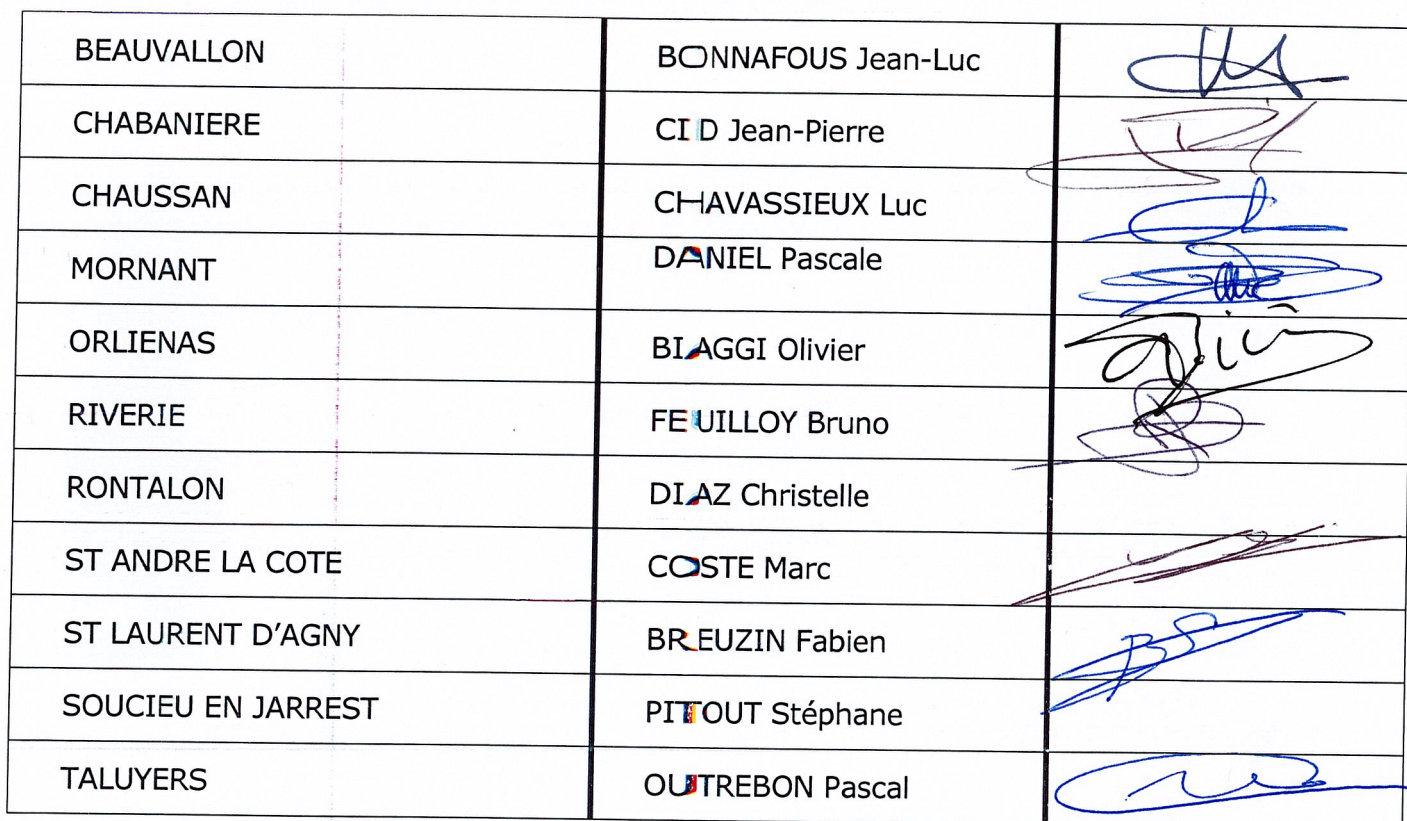 BEAUVALLON BONNAFOUS Jean-Luc
CHABANIERE CID Jean-Pierre
CHAUSSAN CHAVASSIEUX Luc
MORNANT DANIEL Pascale
ORLIENAS BIAGGI Olivier
RIVERIE FEUILLOY Bruno
RONTALON DIAZ Christelle
ST ANDRE LA COTE COSTE Marc
ST LAURENT D'AGNY BREUZIN Fabien
SOUCIEU EN JARREST PITTOUT Stéphane
TALUYERS OUTREBON Pascal